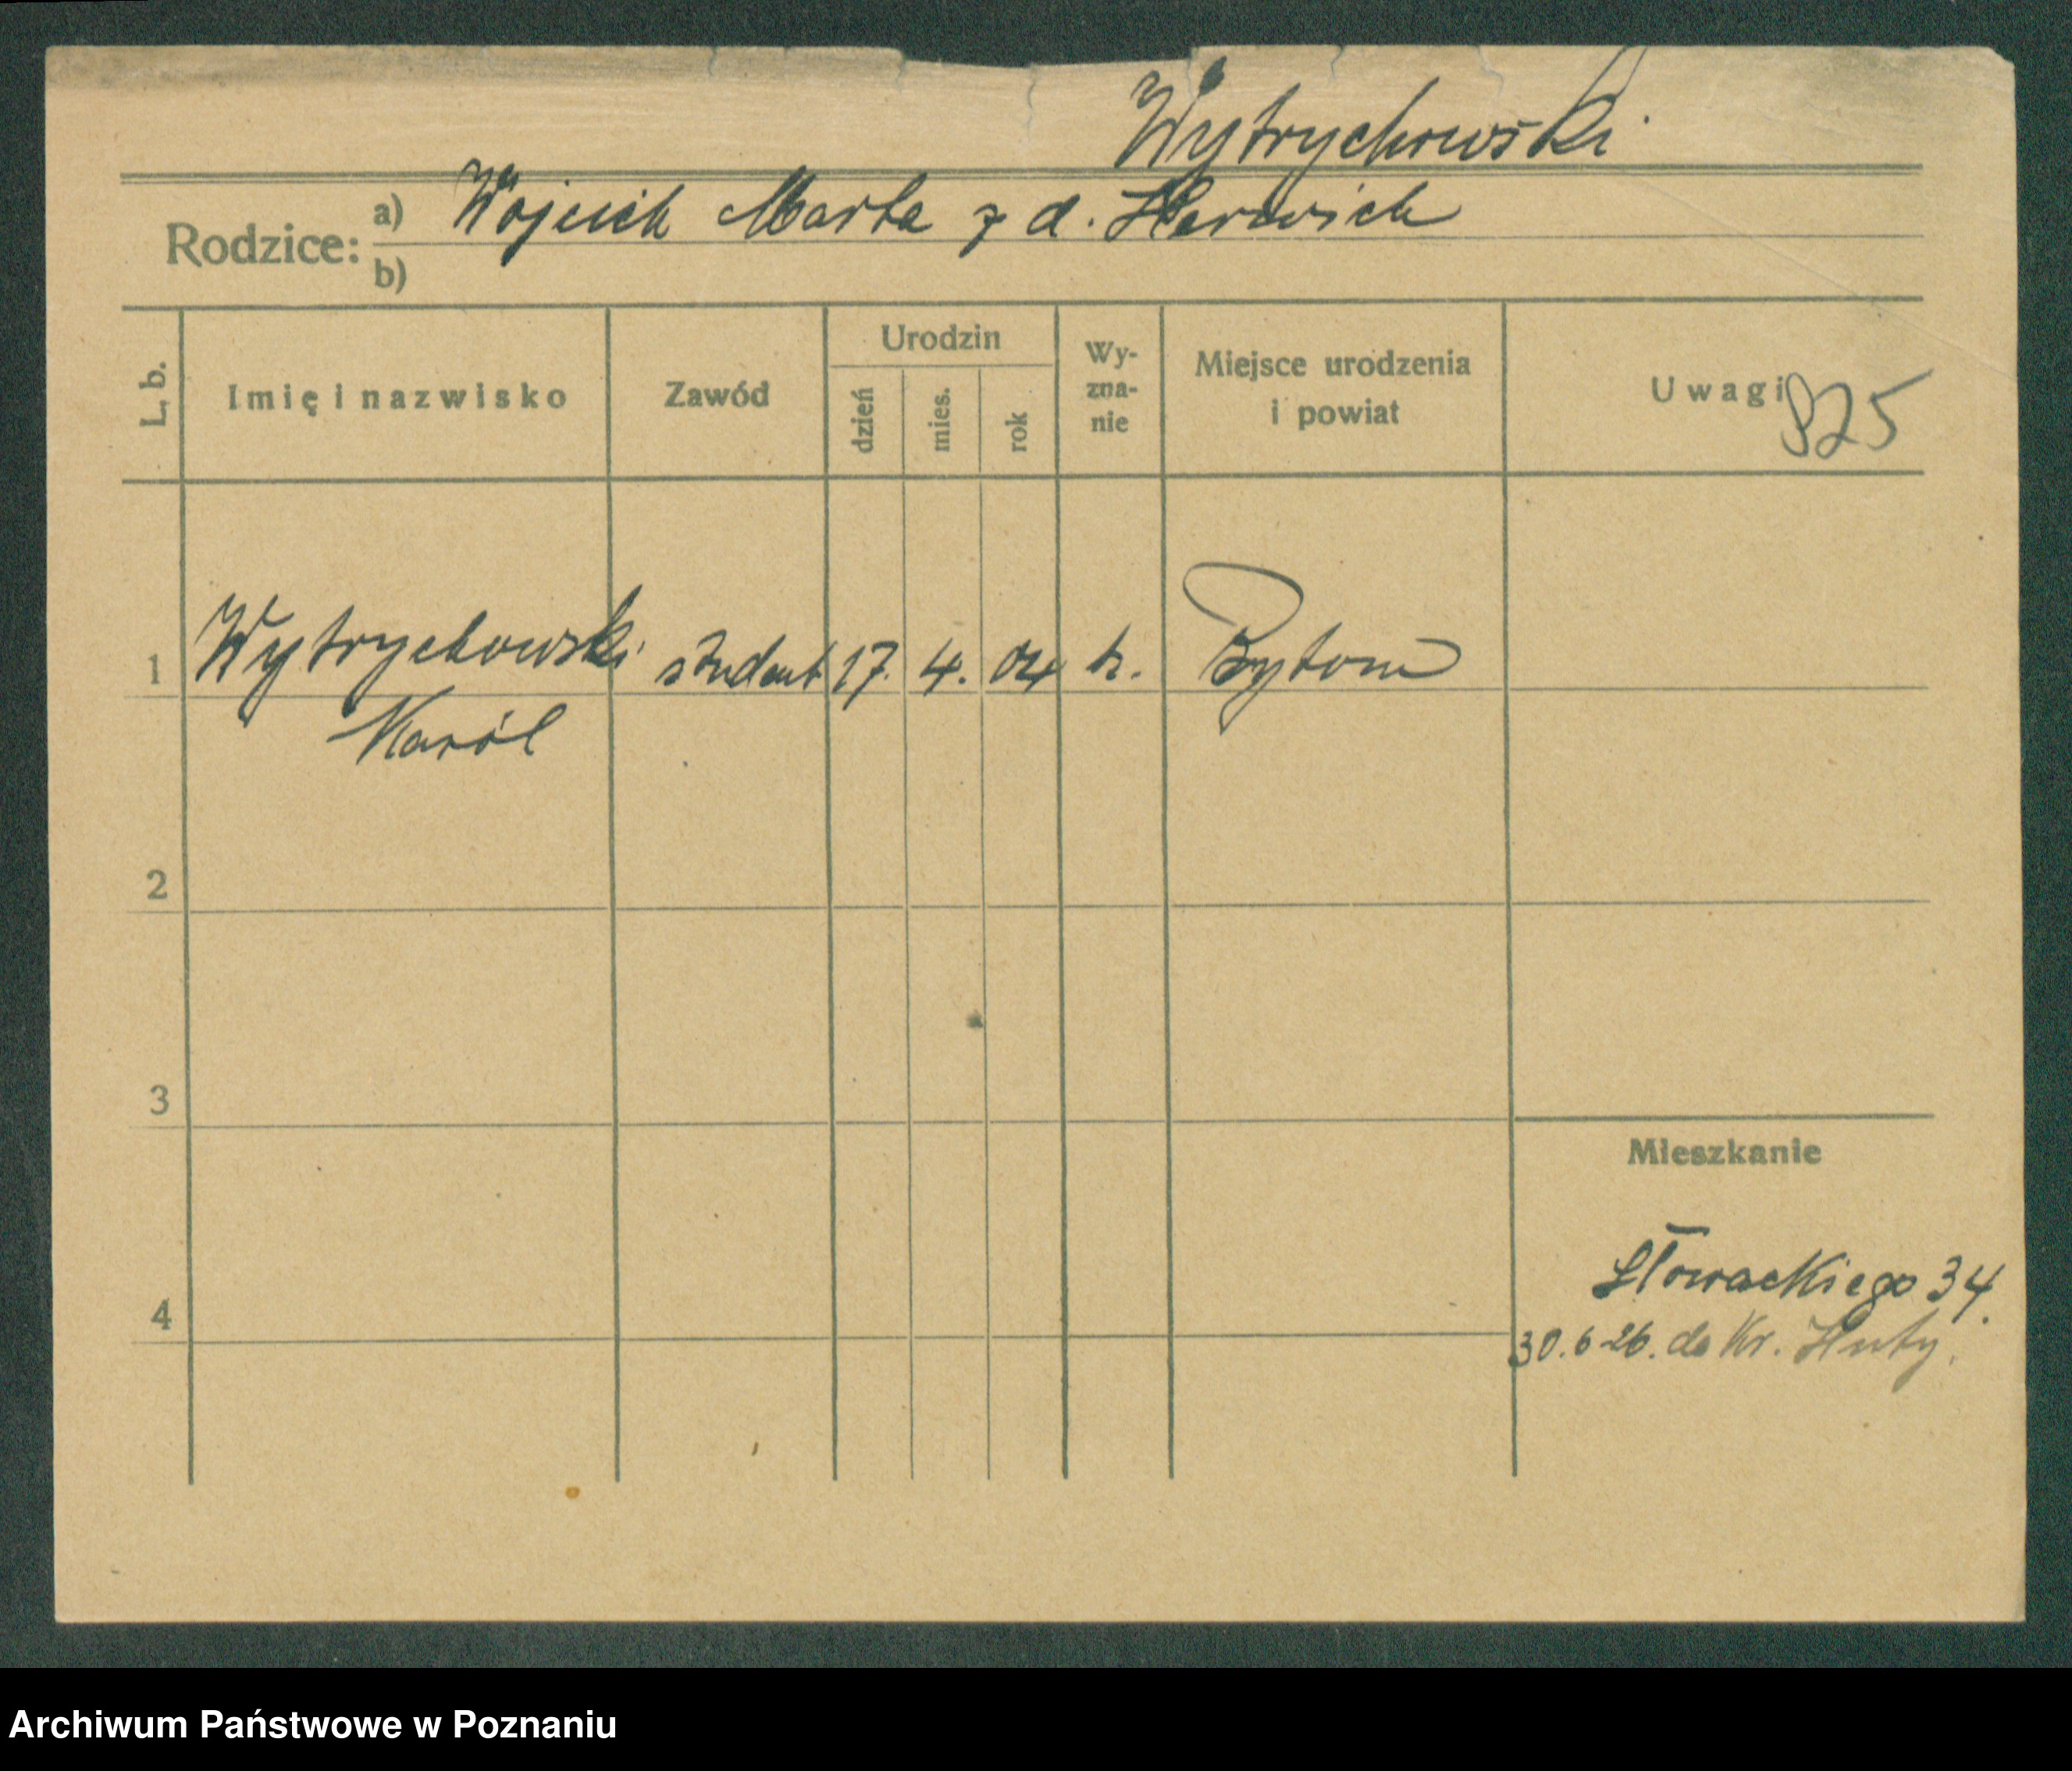 Wytrychowski
Rodzice: a) Wojciech Marta z d.
b)
L. b.
Imię i nazwisko
Zawód
Urodzin
dzień
mies.
rok
Wy-
zna-
nie
Miejsce urodzenia
i powiat
Uwagi
825
1 Wytrychowski student 17. 4. 04 k. Bytom
Karól
2
3
Mieszkanie
Słowackiego 34.
4
30.6 26. do Kr. Huty.
Archiwum Państwowe w Poznaniu